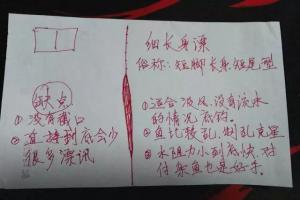 细长身漂
俗称:短脚长身短尾型
缺点
①没有截口
②直接到底会少
很多漂讯
①适合微风,没有流水
的情况底钓。
②鱼比较乱,制乱克星
③水阻力小到底快,对
付杂鱼也是好手